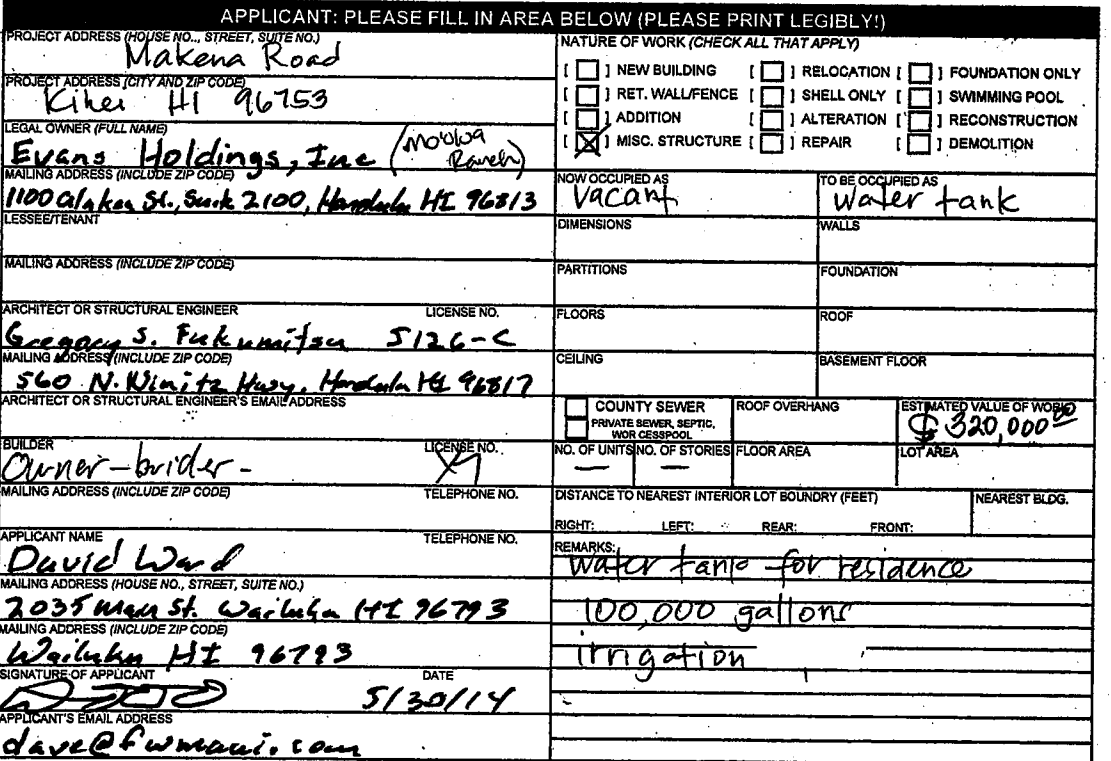 APPLICANT: PLEASE FILL IN AREA BELOW (PLEASE PRINT LEGIBLY!)
PROJECT ADDRESS (HOUSE NO., STREET, SUITE NO.)
Makena Road
PROJECT ADDRESS (CITY AND ZIP CODE)
Kihei HI 96753
LEGAL OWNER (FULL NAME)
Evans Holdings, Inc
MAILING ADDRESS (INCLUDE ZIP CODE)
1100 Alakea St., Suite 2100, Honolulu HI 96813
LESSEE/TENANT
MAILING ADDRESS (INCLUDE ZIP CODE)
ARCHITECT OR STRUCTURAL ENGINEER LICENSE NO.
Gregory S. Fukumitsu 5126-C
MAILING ADDRESS (INCLUDE ZIP CODE)
560 N. Nimitz Hwy, Honolulu HI 96817
ARCHITECT OR STRUCTURAL ENGINEER'S EMAIL ADDRESS
BUILDER LICENSE NO.
Owner-buider-
MAILING ADDRESS (INCLUDE ZIP CODE) TELEPHONE NO.
APPLICANT NAME TELEPHONE NO.
David Ward
MAILING ADDRESS (HOUSE NO., STREET, SUITE NO.)
2035 Main St. Wailuku HI 96793
MAILING ADDRESS (INCLUDE ZIP CODE)
Wailuku HI 96793
SIGNATURE OF APPLICANT DATE
5/30/14
APPLICANT'S EMAIL ADDRESS
dave@fwmaui.com
NATURE OF WORK (CHECK ALL THAT APPLY)
[ ] NEW BUILDING [ ] RELOCATION [ ] FOUNDATION ONLY
[ ] RET. WALL/FENCE [ ] SHELL ONLY [ ] SWIMMING POOL
[ ] ADDITION [ ] ALTERATION [ ] RECONSTRUCTION
[X] MISC. STRUCTURE [ ] REPAIR [ ] DEMOLITION
NOW OCCUPIED AS TO BE OCCUPIED AS
Vacant Water tank
DIMENSIONS WALLS
PARTITIONS FOUNDATION
FLOORS ROOF
CEILING BASEMENT FLOOR
COUNTY SEWER ROOF OVERHANG ESTIMATED VALUE OF WORK
PRIVATE SEWER, SEPTIC,
WOR CESSPOOL
$ 320,000 00
NO. OF UNITS NO. OF STORIES FLOOR AREA LOT AREA
— —
DISTANCE TO NEAREST INTERIOR LOT BOUNDRY (FEET) NEAREST BLDG.
RIGHT: LEFT: REAR: FRONT:
REMARKS:
Water tank for residence
100,000 gallons
irrigation